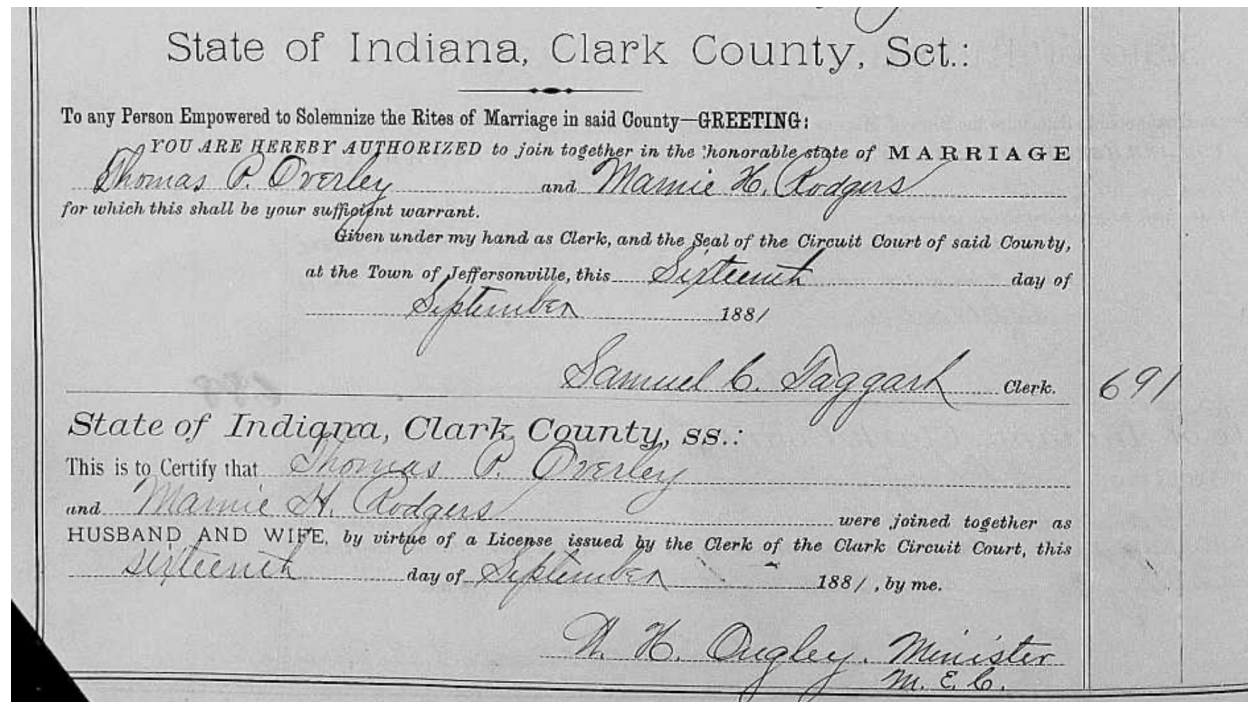 State of Indiana, Clark County, Sct.:
To any Person Empowered to Solemnize the Rites of Marriage in said County—GREETING:
YOU ARE HEREBY AUTHORIZED to join together in the honorable state of MARRIAGE
Thomas P. Overley and Mamie H. Rodgers
for which this shall be your sufficient warrant.
Given under my hand as Clerk, and the Seal of the Circuit Court of said County,
at the Town of Jeffersonville, this Sixteenth day of
September 1881
Samuel C. Taggart Clerk. 691
State of Indiana, Clark County, ss.:
This is to Certify that Thomas P. Overley
and Mamie H. Rodgers were joined together as
HUSBAND AND WIFE, by virtue of a License issued by the Clerk of the Clark Circuit Court, this
sixteenth day of September 1881, by me.
H. Minister
M. E. C.